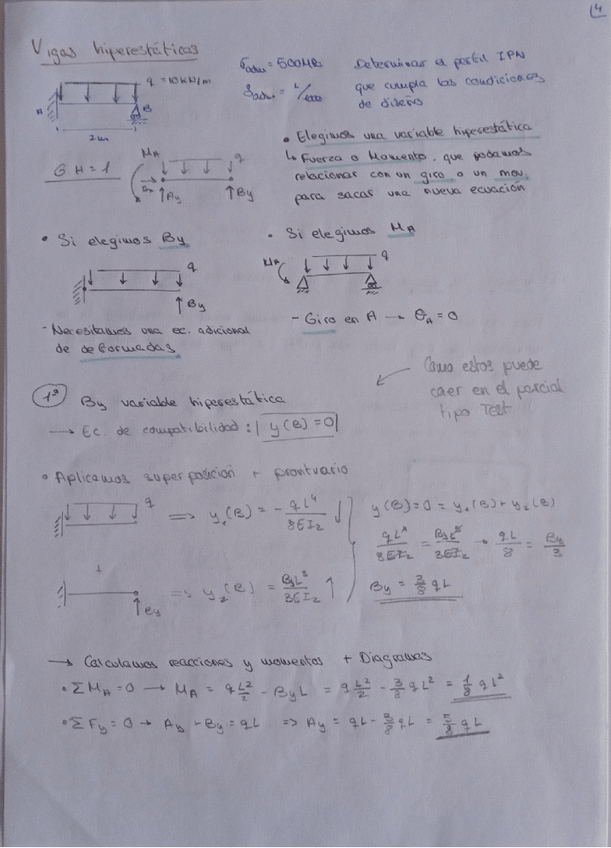 4
Vigas hiperestáticas
q = 10 kN/m
A
B
2m
σadm = 500MPa
δadm = L/1000
Determinar el perfil IPN
que cumpla las condiciones
de diseño
GH = 1
MA
q
Ay
By
• Elegimos una variable hiperestática
↳ Fuerza o Momento, que podamos
relacionar con un giro o un mov.
para sacar una nueva ecuación
• Si elegimos By
q
By
- Necesitamos una ec. adicional
de deformadas
• Si elegimos MA
MA
q
- Giro en A → θA = 0
Como estos puede
caer en el parcial
tipo Test
1º By variable hiperestática
→ Ec. de compatibilidad: y(B) = 0
• Aplicamos superposición + prontuario
q
⇒ y₁(B) = - qL⁴/8EIz ↓
+
By
⇒ y₂(B) = ByL³/3EIz ↑
y(B) = 0 = y₁(B) + y₂(B)
qL⁴/8EIz = ByL³/3EIz → qL/8 = By/3
By = 3/8 qL
→ Calculamos reacciones y momentos + Diagramas
• ΣMA = 0 → MA = q L²/2 - By L = q L²/2 - 3/8 qL² = 1/8 qL²
• ΣFy = 0 → Ay - By = qL ⇒ Ay = qL - 3/8 qL = 5/8 qL